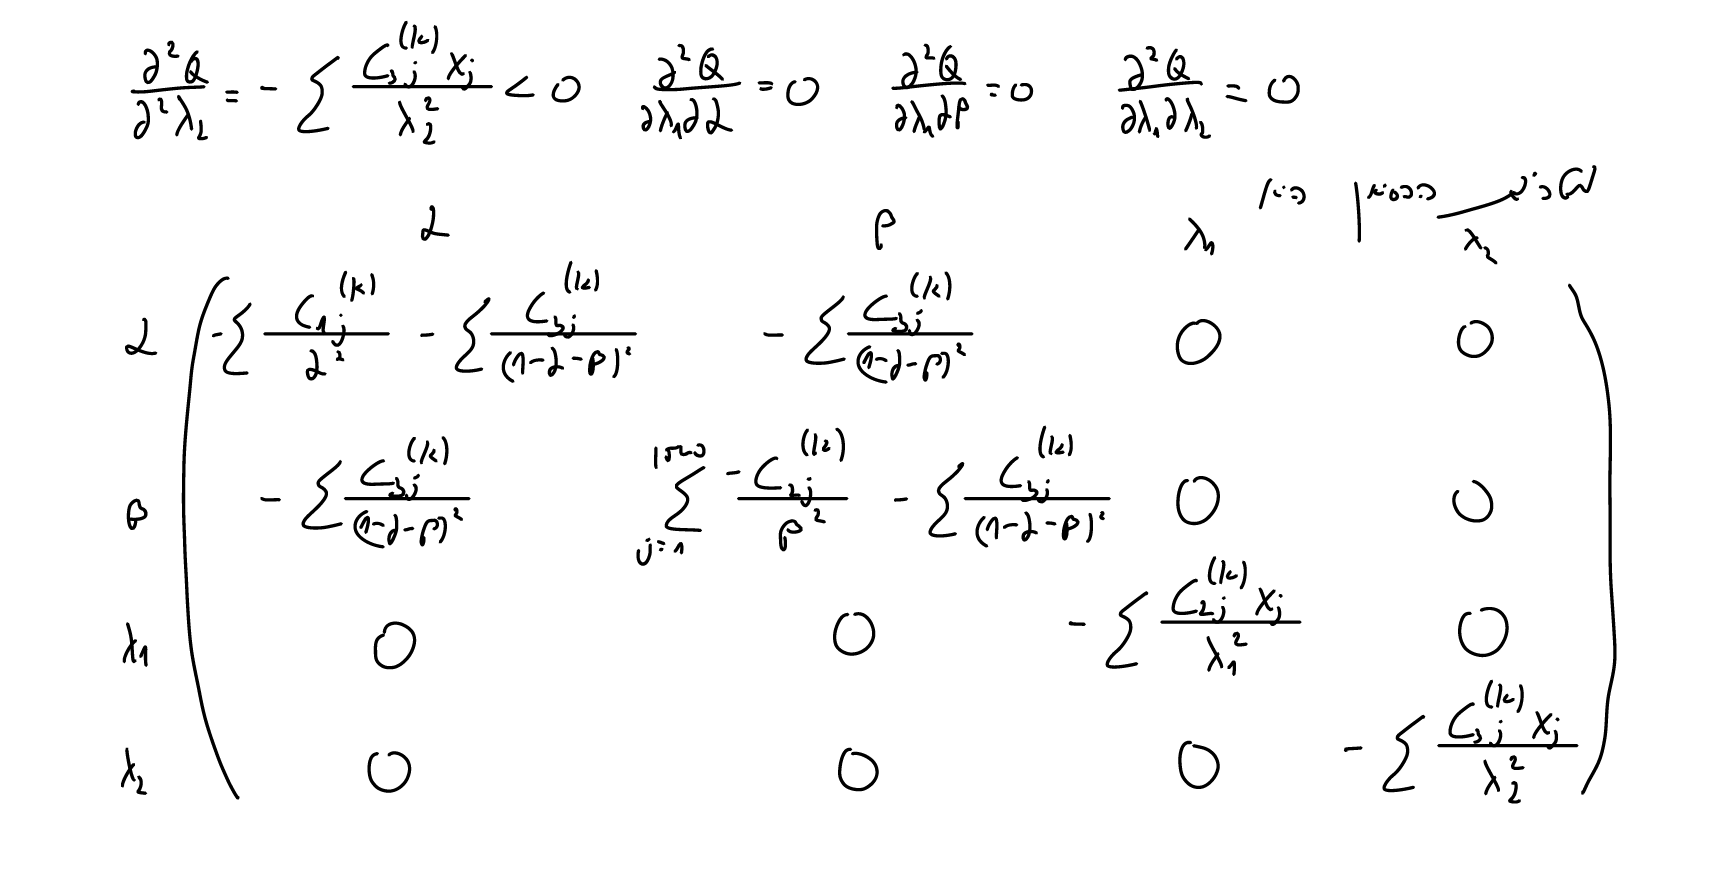 ∂²Q/∂²λ₂ = - Σ C₃ⱼ^(k) xⱼ / λ₂² < 0   ∂²Q/∂λ₁∂α = 0   ∂²Q/∂λ₁∂β = 0   ∂²Q/∂λ₁∂λ₂ = 0
α   β   λ₁   λ₂
α   - Σ C₁ⱼ^(k) / α² - Σ C₃ⱼ^(k) / (1-α-β)²   - Σ C₃ⱼ^(k) / (1-α-β)²   0   0
β   - Σ C₃ⱼ^(k) / (1-α-β)²   Σ_{j=1}^{1520} -C₂ⱼ^(k) / β² - Σ C₃ⱼ^(k) / (1-α-β)²   0   0
λ₁   0   0   - Σ C₂ⱼ^(k) xⱼ / λ₁²   0
λ₂   0   0   0   - Σ C₃ⱼ^(k) xⱼ / λ₂²